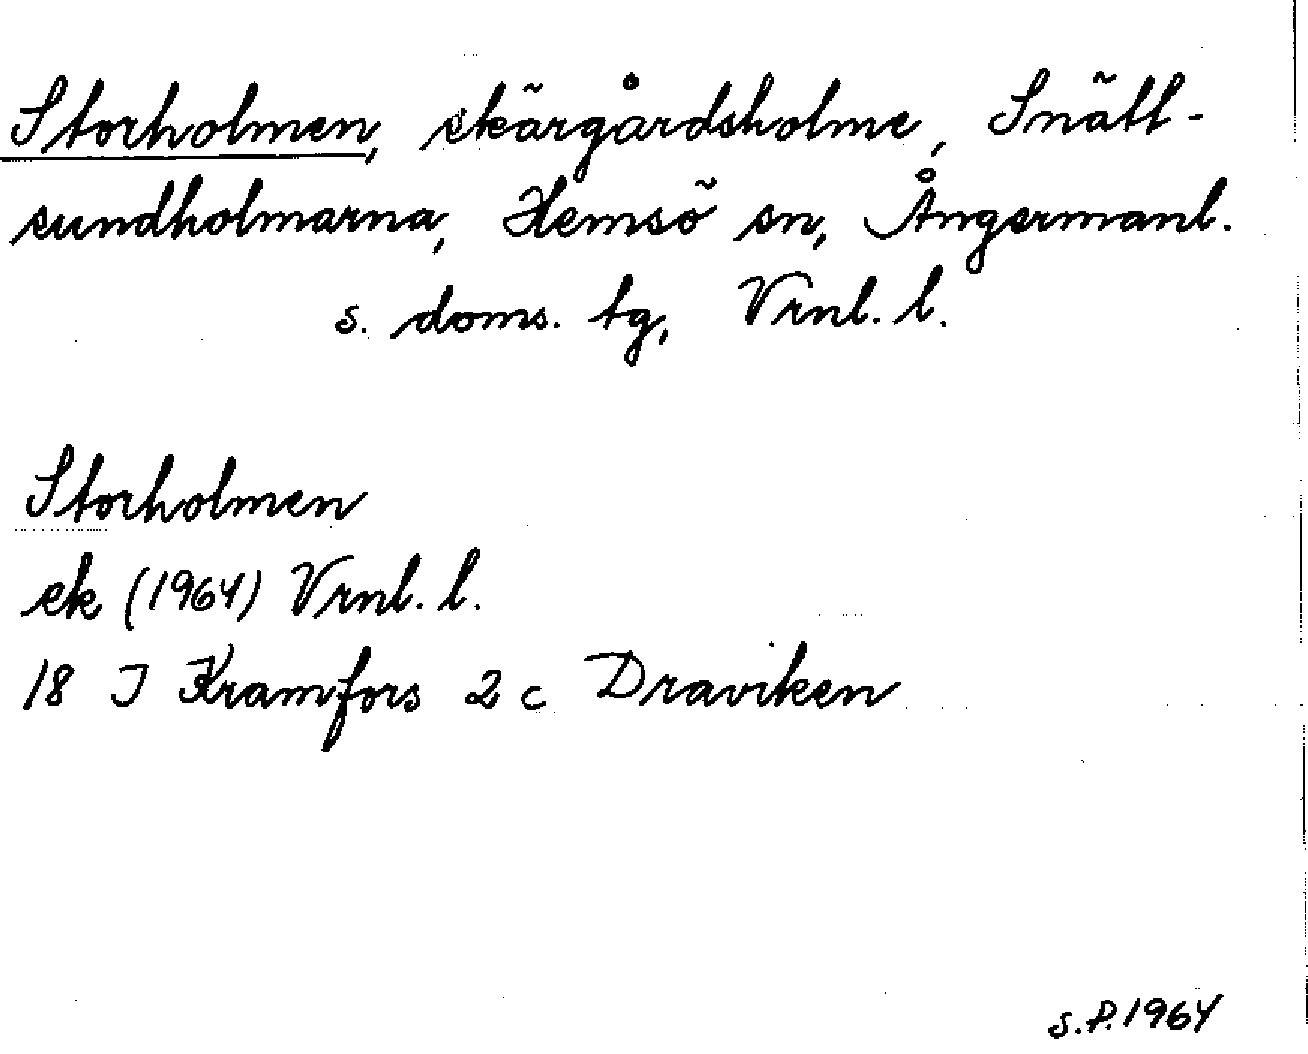 Storholmen, skärgårdsholme, Snätt-
sundholmarna, Hemsö sn, Ångermanl.
s. doms. tg, Vrnl. l.
Storholmen
ek (1964) Vrnl. l.
18 J Kramfors 2 c Draviken
S.P. 1964